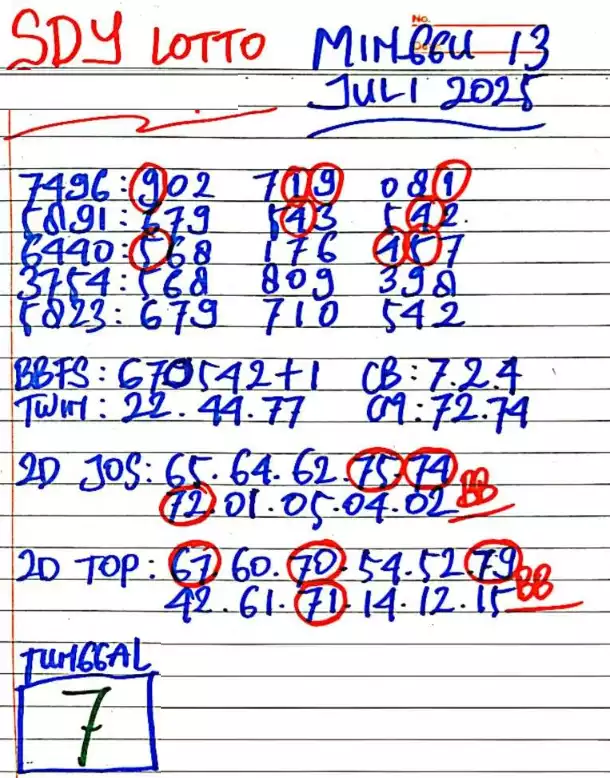 SDY LOTTO
No.
MINGGU 13
JULI 2025
7496 : 902 719 081
5891 : 679 543 542.
6440 : 568 176 457
3754 : 568 809 398
5823 : 679 710 542
BBFS : 670542+1 CB : 7.2.4
TWIN : 22.44.77 CM : 72.74
2D JOS : 65.64.62.75.74
72.01.05.04.02 BB
2D TOP : 67.60.70.54.52 79
42.61.71.14.12.15 BB
TUNGGAL
7